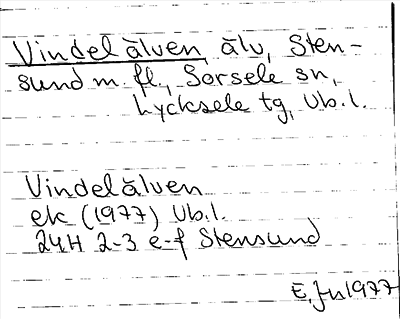 Vindelälven, älv, Sten-
sund m. fl., Sorsele sn,
Lycksele tg, Vb. l.
Vindelälven
ek (1977) Vb. l.
24H 2-3 e-f Stensund
1977